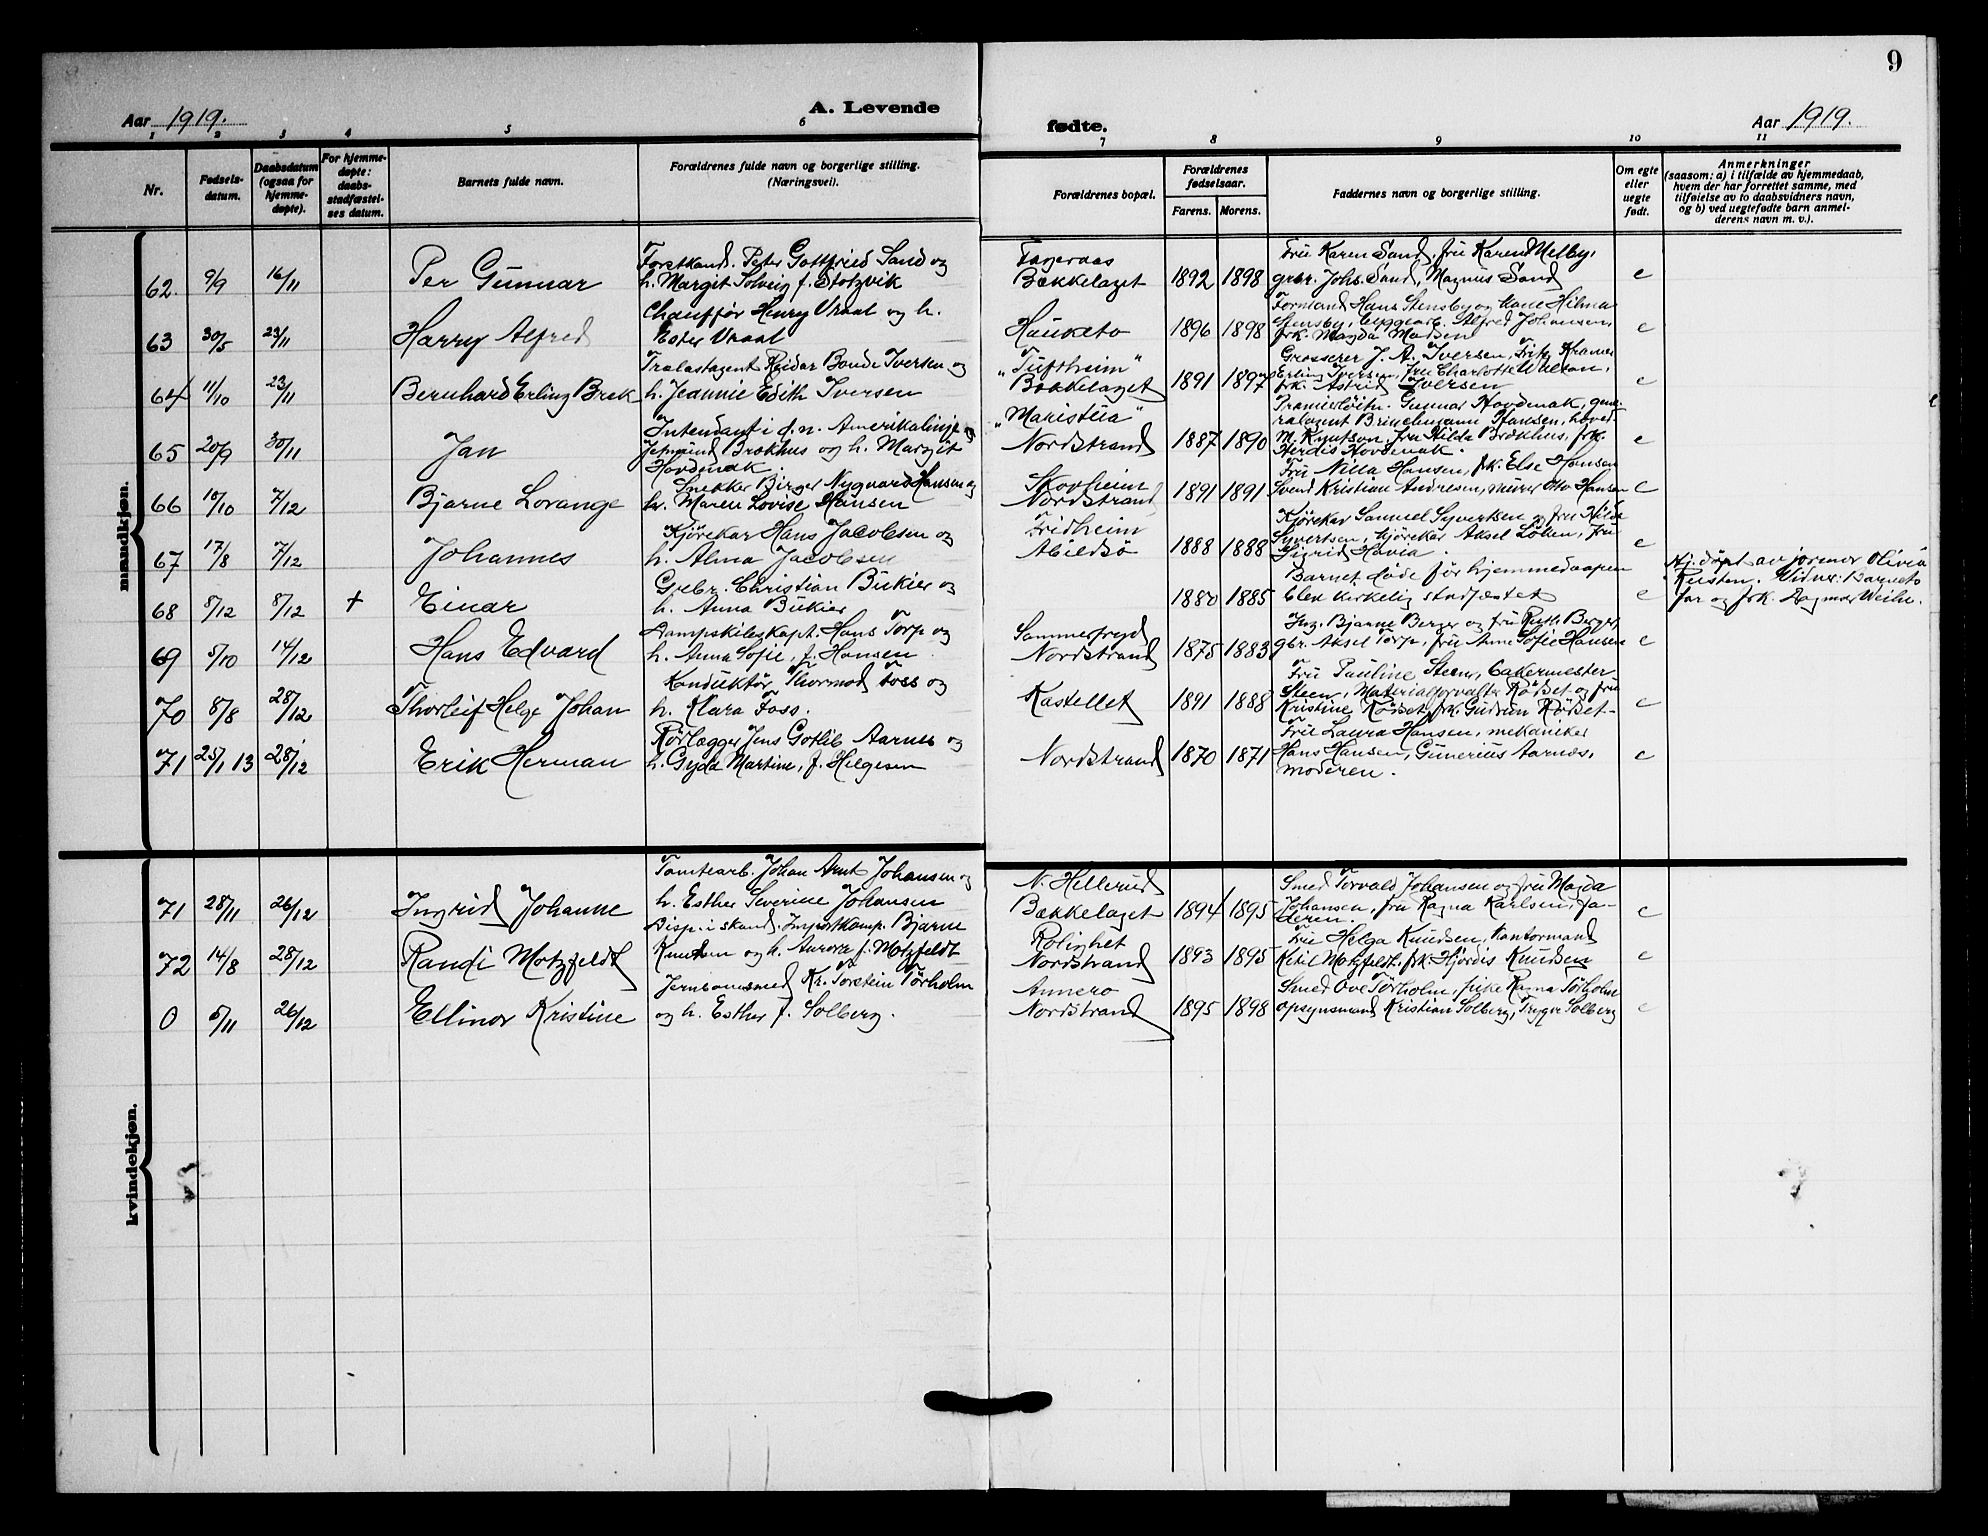 9
Aar 1919. A. Levende fødte. Aar 1919.
1 2 3 4 5 6 7 8 9 10 11
Nr. Fødsels-datum. Daabsdatum (ogsaa for hjemme-døpte). For hjemme-døpte: daabs-stadfæstel-ses datum. Barnets fulde navn. Forældrenes fulde navn og borgerlige stilling. (Næringsvei). Forældrenes bopæl. Forældrenes fødselsaar. Farens. Morens. Faddernes navn og borgerlige stilling. Om egte eller uegte født. Anmerkninger (saasom: a) i tilfælde av hjemmedaab, hvem der har forrettet samme, med tilføielse av to daabsvidners navn, og b) ved uegtefødte barn anmel-derens navn m. v.).
mandkjøn.
Forstkand. Peter Gottfried Sand og Fagernaas Fru Karen Sand, fru Karen Melby,
62. 9/9 16/11 Per Gunnar h. Margit Solveig f. Stolzvik Bækkelaget 1892 1898 grbr. Johs. Sand, Magnus Sand e
Chauffør Henry Vraal og h. Formand Hans Stensby og Hilma
63 30/5 23/11 Harry Alfred Ester Vraal Hauketo 1896 1898 Stensby, Alfred Johansen, frk. Magda Madsen e
Tralastagent Reidar Bonde Iversen og "Tuftheim" Grosserer J. A. Iversen, Fritz Kramer
64 11/10 23/11 Bernhard Erling Brek h. Jeannie Edith Iversen Bækkelaget 1891 1897 Erling Iversen, fru Charlotte frk. Astrid Iversen e
Intendant i d. n. Amerikalinje "Maristua" Premierløitn. Gunnar Hovdenak, gene-
ralagent Brinchmann Hansen,
65 20/9 30/11 Jan Brækhus og h. Margit Hovdenak. Nordstrand 1887 1890 M. Knutson, fru Hilda Brækhus, frk. Herdis Hovdenak. e
Snekker Birger Nygaard Hansen og Skovheim Fru Nilla Hansen, frk. Else Hansen
66 10/10 7/12 Bjarne Lorange h. Maren Lovise Hansen Nordstrand 1891 1891 Svend Kristian Andresen, murer Otto Hansen e
Kjørekar Hans Jacobsen og Fridheim Kjørekar Samuel Syvertsen og fru Hilda
67 17/8 7/12 Johannes h. Alma Jacobsen Abildsø 1888 1888 Syvertsen, kjørekar Aksel Løken, fru Sigrid Havia. e
Grbr. Christian Bukier og Barnet døde før hjemmedaapen Hj. døpt av jormor Olivia
68 8/12 8/12 + Einar h. Anna Bukier 1880 1885 blev kirkelig stadfæstet e Rusten. Vidner: Barnets
far og frk. Dagmar Weihe.
Dampskibskapt. Hans Torp og Sommerfryd Ing. Bjarne Berger og fru Ruth Berger,
69 5/10 14/12 Hans Edvard h. Anna Sofie, f. Hansen Nordstrand 1875 1883 gbr. Aksel Torp, fru Anne Sofie Hansen e
Konduktør Thormod Foss og Fru Pauline Steen, bakermester
70 8/8 28/12 Thorleif Helge Johan h. Klara Foss. Kastellet 1891 1888 Steen, Materialforvalter Røsset og fru Kristine Røsset, frk. Gudrun Røsset e
Rørlægger Jens Gotlib Aarnes og Fru Laura Hansen, mekaniker
71 25/1 13 28/12 Erik Herman h. Gyda Martine, f. Helgesen Nordstrand 1870 1871 Hans Hansen, Gunerius Aarnæs, moderen. e
kvindekjøn.
Tomtearb. Johan Arnt Johansen og N. Hellerud Smed Torvald Johansen og fru Magda
71 28/11 26/12 Ingrid Johanne h. Esther Severine Johansen Bækkelaget 1894 1895 Johansen, fru Ragna Karlsen, faderen. e
Disp. i skand. Importkomp. Bjarne Rolighet Fru Helga Knudsen, Kontormand
72 14/8 28/12 Randi Motzfeldt Knudsen og h. Aurora f. Motzfeldt Nordstrand 1893 1895 Ketil Motzfeldt, frk. Hjørdis Knudsen e
Jernbanesmed Kr. Torstein Tørholm Annero Smed Ove Tørholm, frøke Ragna Tørholm
0 5/11 26/12 Ellinor Kristine og h. Esther f. Solberg. Nordstrand 1895 1898 opsynsmand Kristian Solberg, Trygve Solberg e